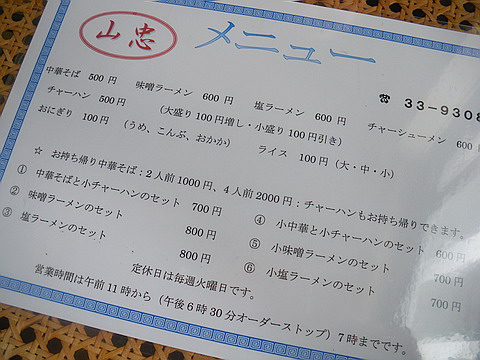 山忠 メニュー
☎ 33-9308
中華そば 500円 味噌ラーメン 600円 塩ラーメン 600円 チャーシューメン 600
チャーハン 500円 (大盛り100円増し・小盛り100円引き)
おにぎり 100円 (うめ、こんぶ、おかか) ライス 100円(大・中・小)
☆ お持ち帰り中華そば:2人前1000円、4人前2000円:チャーハンもお持ち帰りできます。
① 中華そばと小チャーハンのセット 700円
② 味噌ラーメンのセット 800円
③ 塩ラーメンのセット 800円
④ 小中華と小チャーハンのセット 600円
⑤ 小味噌ラーメンのセット 700円
⑥ 小塩ラーメンのセット 700円
定休日は毎週火曜日です。
営業時間は午前11時から(午後6時30分オーダーストップ)7時までです。